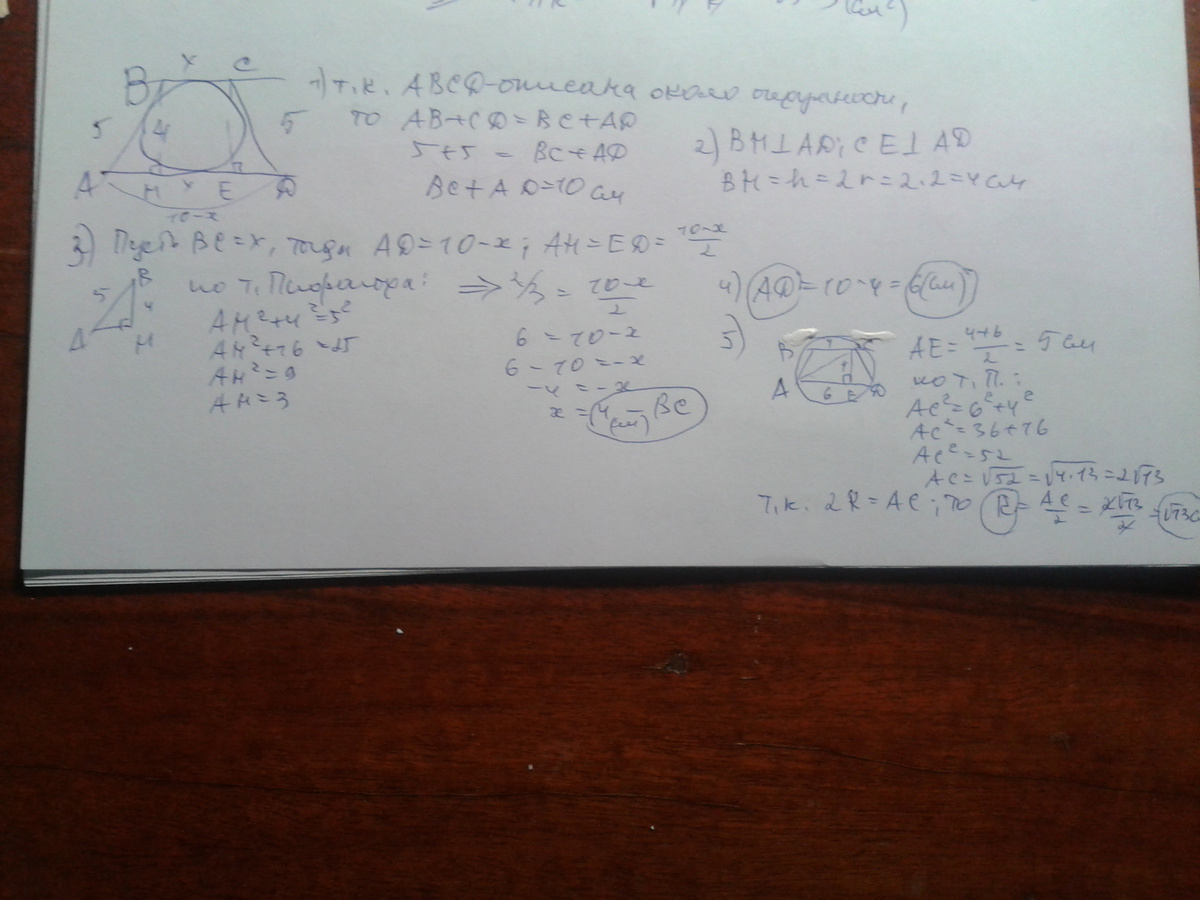 (см²)
B x C
5 4 5
A H x E D
10-x
1) т.к. ABCD-описана около окружности,
то AB+CD=BC+AD
5+5 = BC+AD
BC+AD=10 см
2) BH⊥AD; CE⊥AD
BH=h=2r=2·2=4 см
3) Пусть BC=x, тогда AD=10-x; AH=ED=10-x/2
B
5 4
A H
по т. Пифагора:
AH²+4²=5²
AH²+16=25
AH²=9
AH=3
⇒ 3 = 10-x/2
6 = 10-x
6-10=-x
-4=-x
x=4 (см) - BC
4) AD=10-4=6 (см)
5)
B
A 6 E D
AE=4+6/2=5 см
по т. П.:
AC²=6²+4²
AC²=36+16
AC²=52
AC=√52=√4·13=2√13
т.к. 2R=AC; то R=AC/2=2√13/2=√13